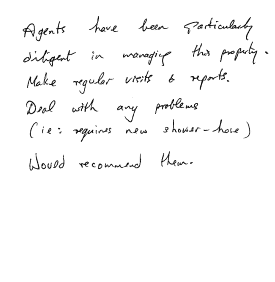 Agents have been particularly
diligent in managing this property.
Make regular visits & reports.
Deal with any problems
(ie: requires new shower-hose)
Would recommend them.